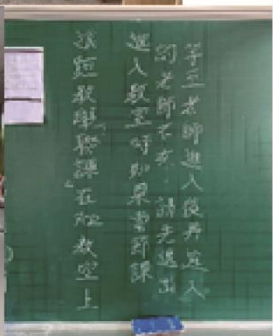 等王老師進入後再進入
的老師不在 請先退出
進入教室時如果前節課
遠距教學務課在此教室上